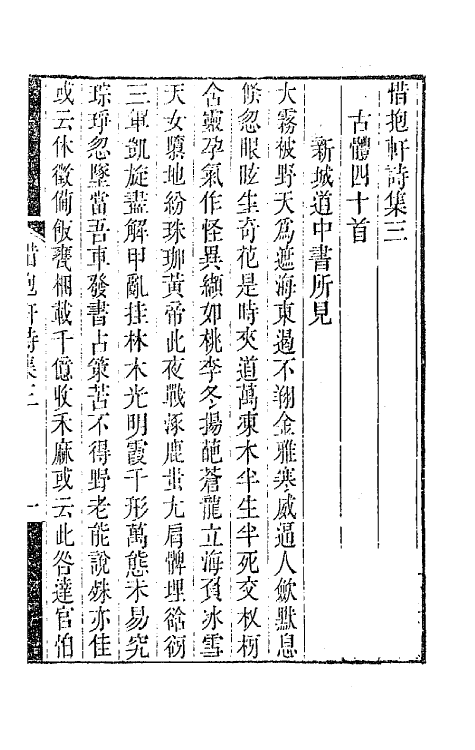 惜抱軒詩集三
古體四十首
新城道中書所見
大霧被野天爲遮海東過不翔金雅寒威逼人歛默息
倏忽眼眩生奇花是時夾道萬束木半生半死交杈枒
含靈孕氣作怪異纈如桃李冬揚葩蒼龍立海負冰雪
天女隕地紛珠珈黃帝此夜戰涿鹿蚩尤肩髀埋谽谺
三軍凱旋盡解甲亂挂林木光明霞千形萬態未易究
琮琤忽墜當吾車發書占策苦不得野老能說殊亦佳
或云休徵備飯甕梱載千億收禾麻或云此咎達官怕
惜抱軒詩集三
一